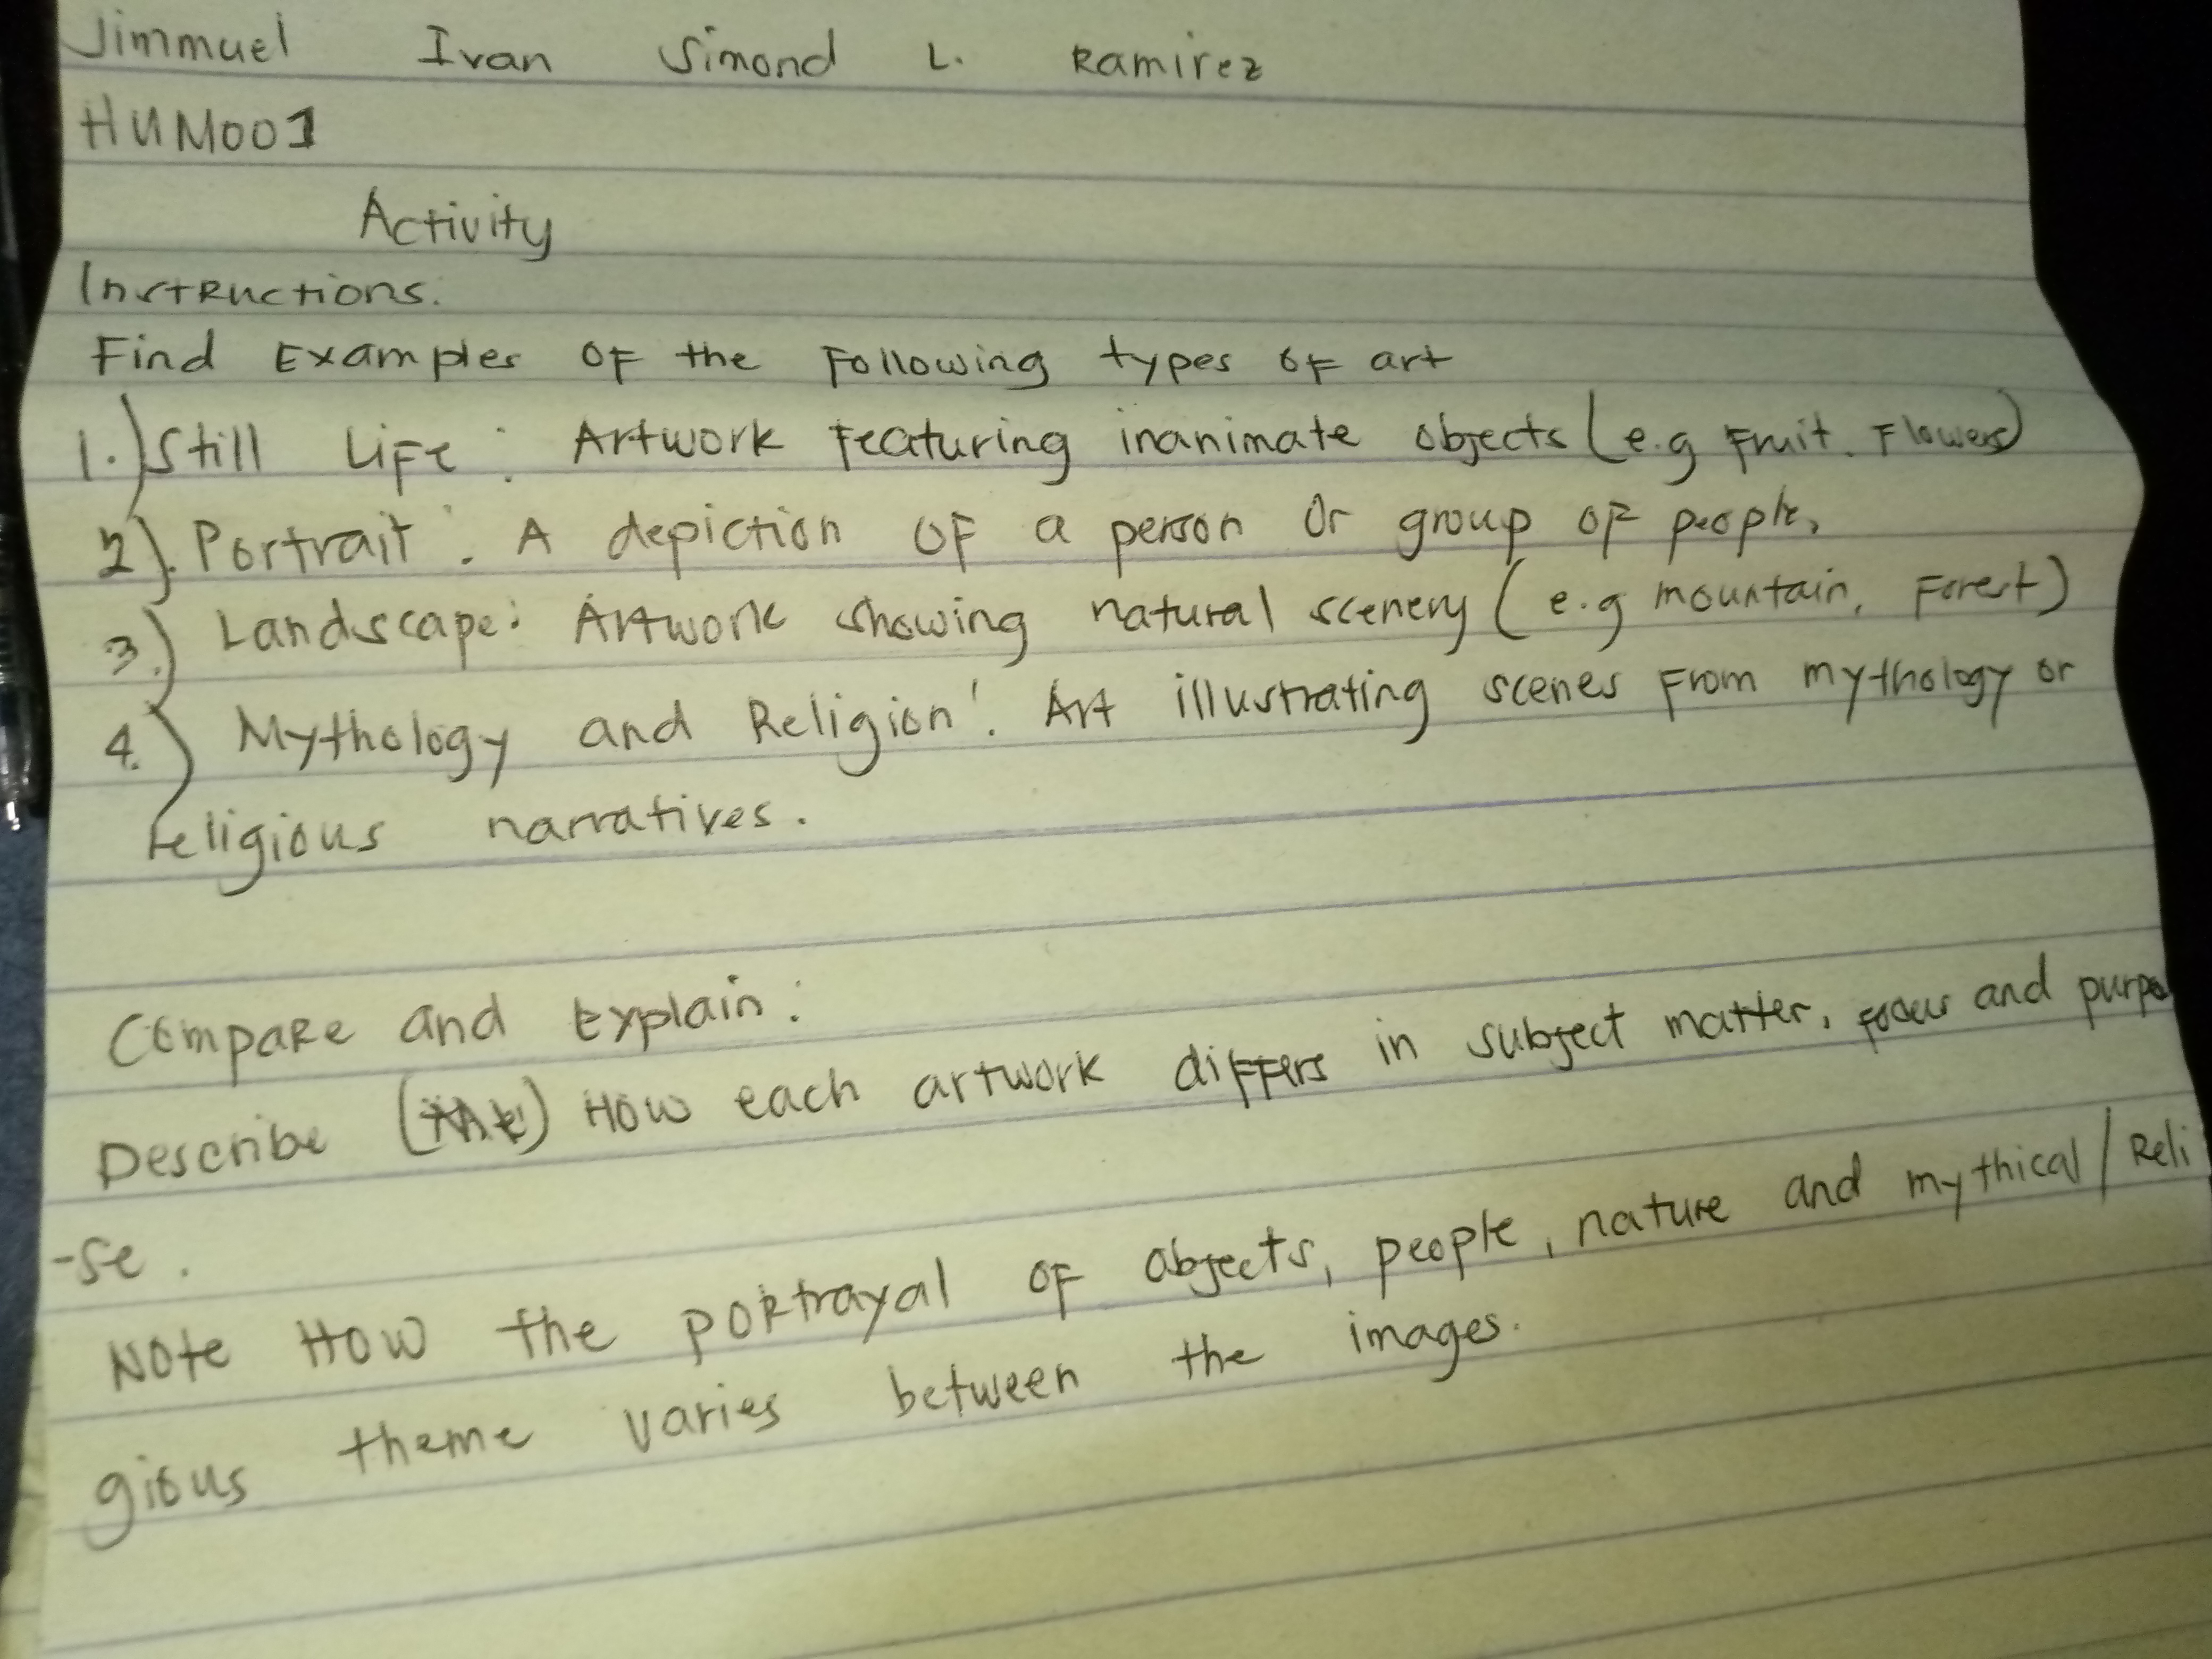 Jimmuel Ivan Simond L. Ramirez
HUM001
Activity
Instructions:
Find Examples of the Following types of art
1.) Still Life: Artwork Featuring inanimate objects (e.g Fruit. Flowers)
2). Portrait: A depiction of a person or group of people.
3.) Landscape: Artwork showing natural scenery (e.g mountain, Forest)
4.) Mythology and Religion: Art illustrating scenes from mythology or
religious narratives.
Compare and Explain:
Describe () How each artwork differs in subject matter, focus and purpo
-se.
Note How the portrayal of objects, people, nature and mythical/Reli
gious theme varies between the images.